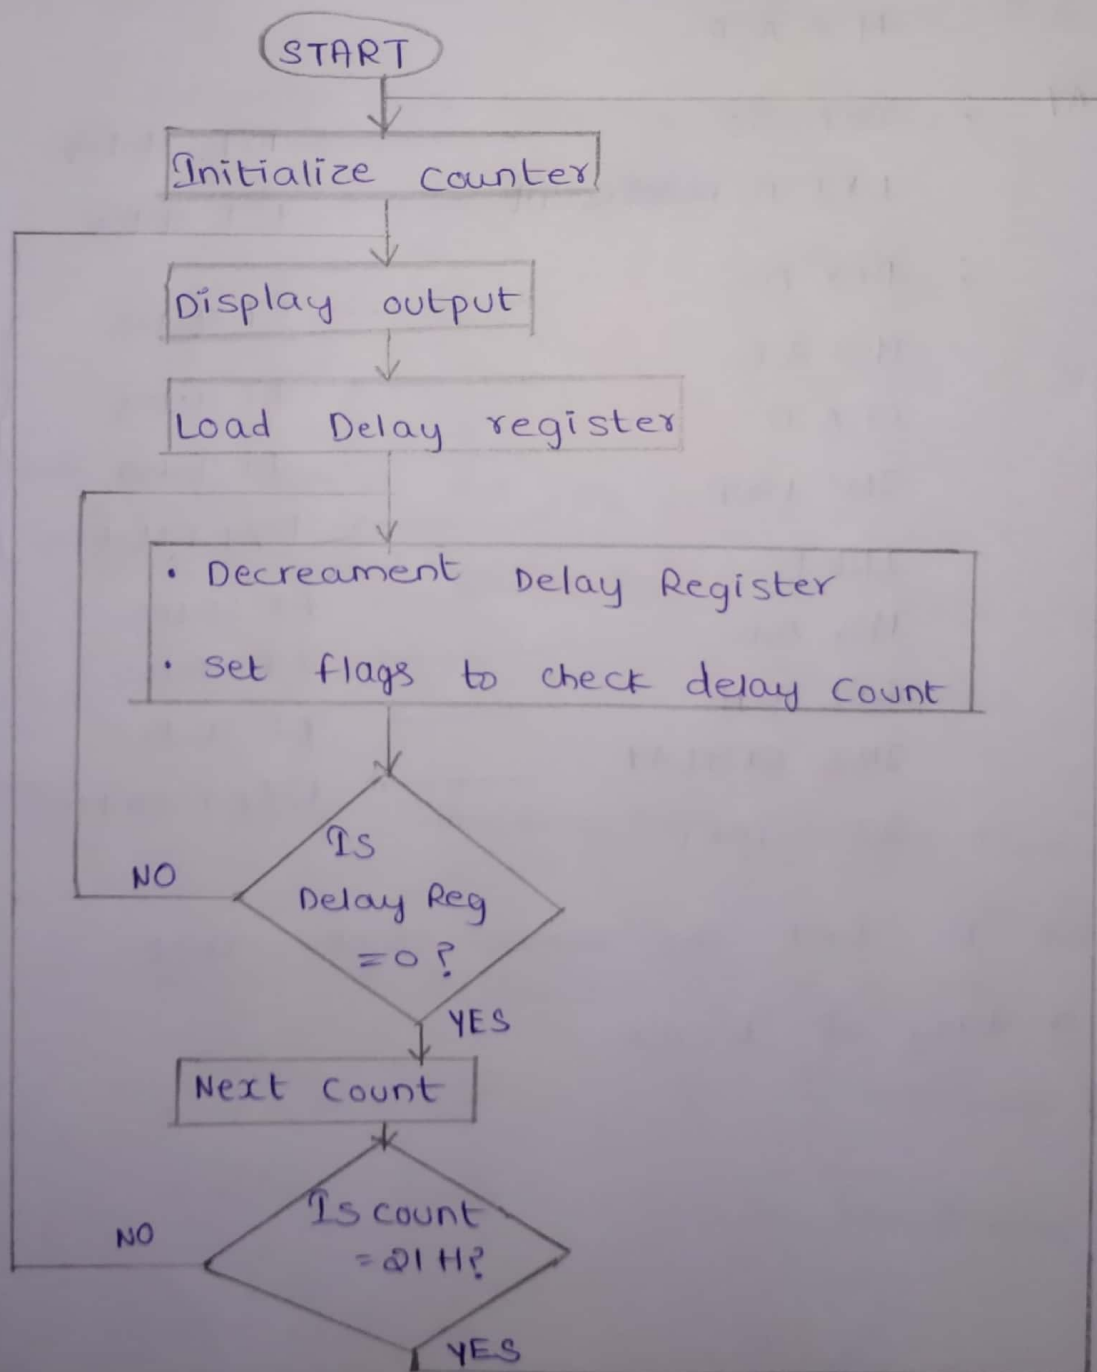 START
Initialize counter
Display output
Load Delay register
• Decreament Delay Register
• Set flags to check delay count
Is
Delay Reg
=0?
NO
YES
Next Count
Is count
=21H?
NO
YES